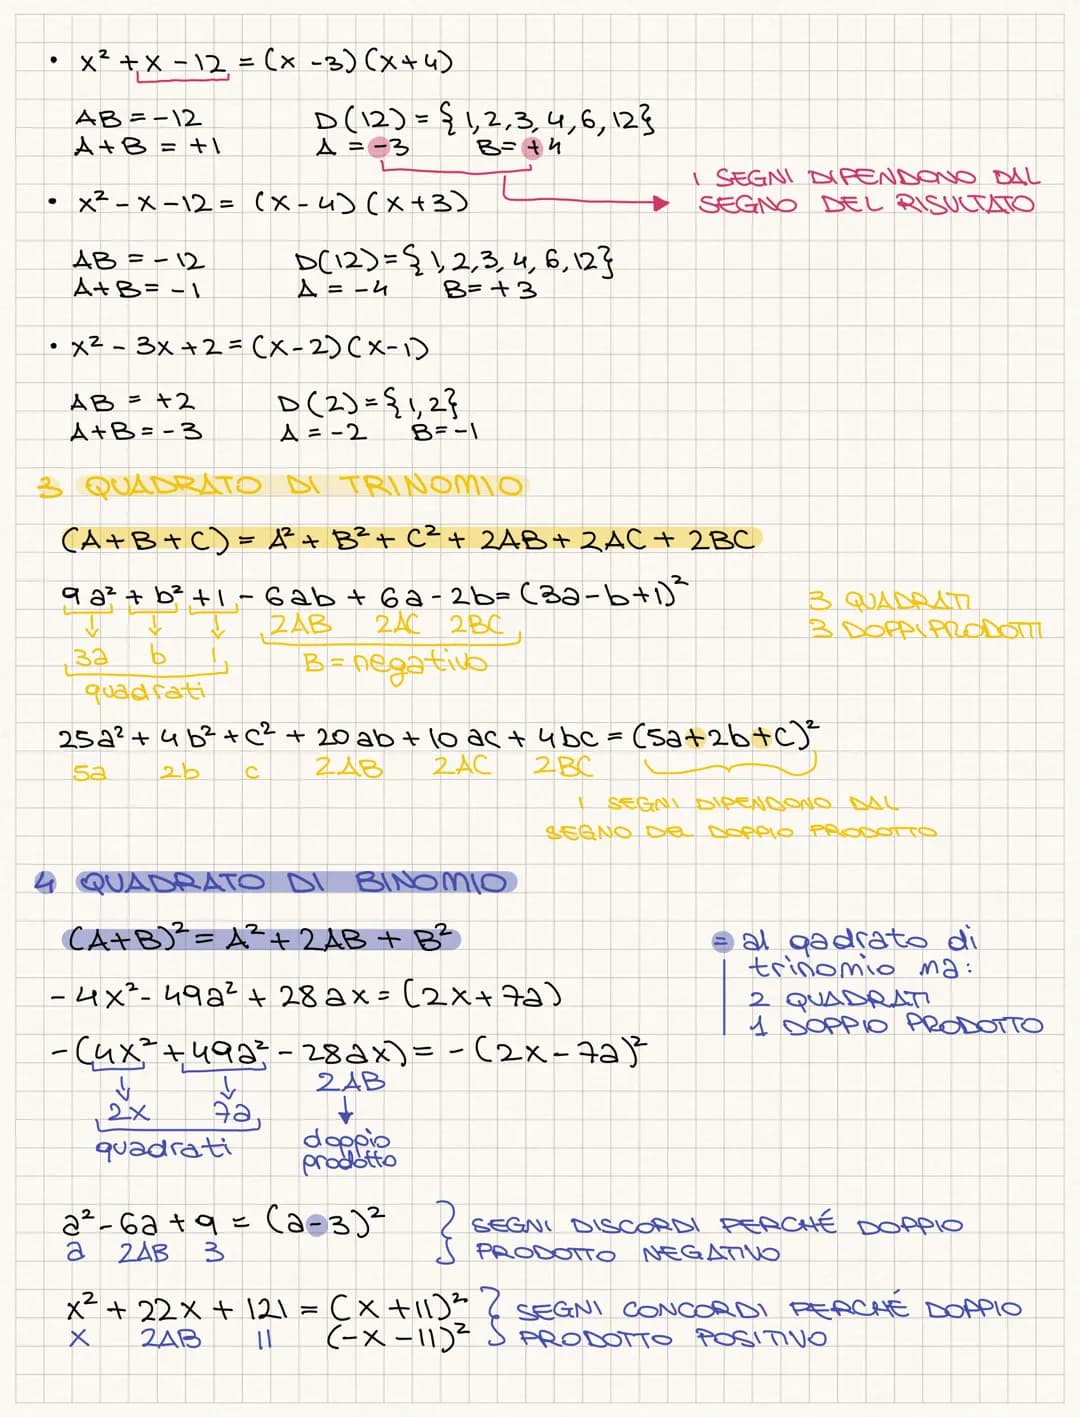 • x² + x - 12 = (x - 3)(x + 4)
AB = -12 D(12) = {1, 2, 3, 4, 6, 12}
A + B = +1 A = -3 B = +4
I SEGNI DIPENDONO DAL
SEGNO DEL RISULTATO
• x² - x - 12 = (x - 4)(x + 3)
AB = -12 D(12) = {1, 2, 3, 4, 6, 12}
A + B = -1 A = -4 B = +3
• x² - 3x + 2 = (x - 2)(x - 1)
AB = +2 D(2) = {1, 2}
A + B = -3 A = -2 B = -1
3 QUADRATO DI TRINOMIO
(A + B + C) = A² + B² + C² + 2AB + 2AC + 2BC
9a² + b² + 1 - 6ab + 6a - 2b = (3a - b + 1)²
3 QUADRATI
3 DOPPI PRODOTTI
2AB 2AC 2BC
3a b 1 B = negativo
quadrati
25a² + 4b² + c² + 20ab + 10ac + 4bc = (5a + 2b + c)²
5a 2b c 2AB 2AC 2BC
I SEGNI DIPENDONO DAL
SEGNO DEL DOPPIO PRODOTTO
4 QUADRATO DI BINOMIO
(A + B)² = A² + 2AB + B²
= al qadrato di
trinomio ma:
2 QUADRATI
1 DOPPIO PRODOTTO
- 4x² - 49a² + 28ax = (2x + 7a)
- (4x² + 49a² - 28ax) = - (2x - 7a)²
2AB
2x 7a
quadrati doppio
prodotto
a² - 6a + 9 = (a - 3)² } SEGNI DISCORDI PERCHÉ DOPPIO
a 2AB 3 PRODOTTO NEGATIVO
x² + 22x + 121 = (x + 11)² } SEGNI CONCORDI PERCHÉ DOPPIO
x 2AB 11 (-x - 11)² PRODOTTO POSITIVO